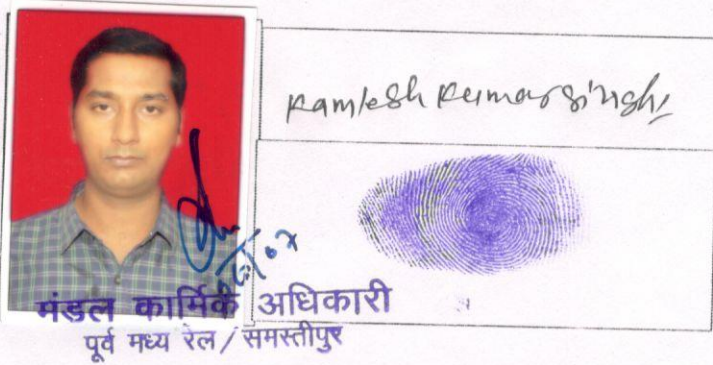 Kamlesh Kumar Singh
मंडल कार्मिक अधिकारी
पूर्व मध्य रेल / समस्तीपुर